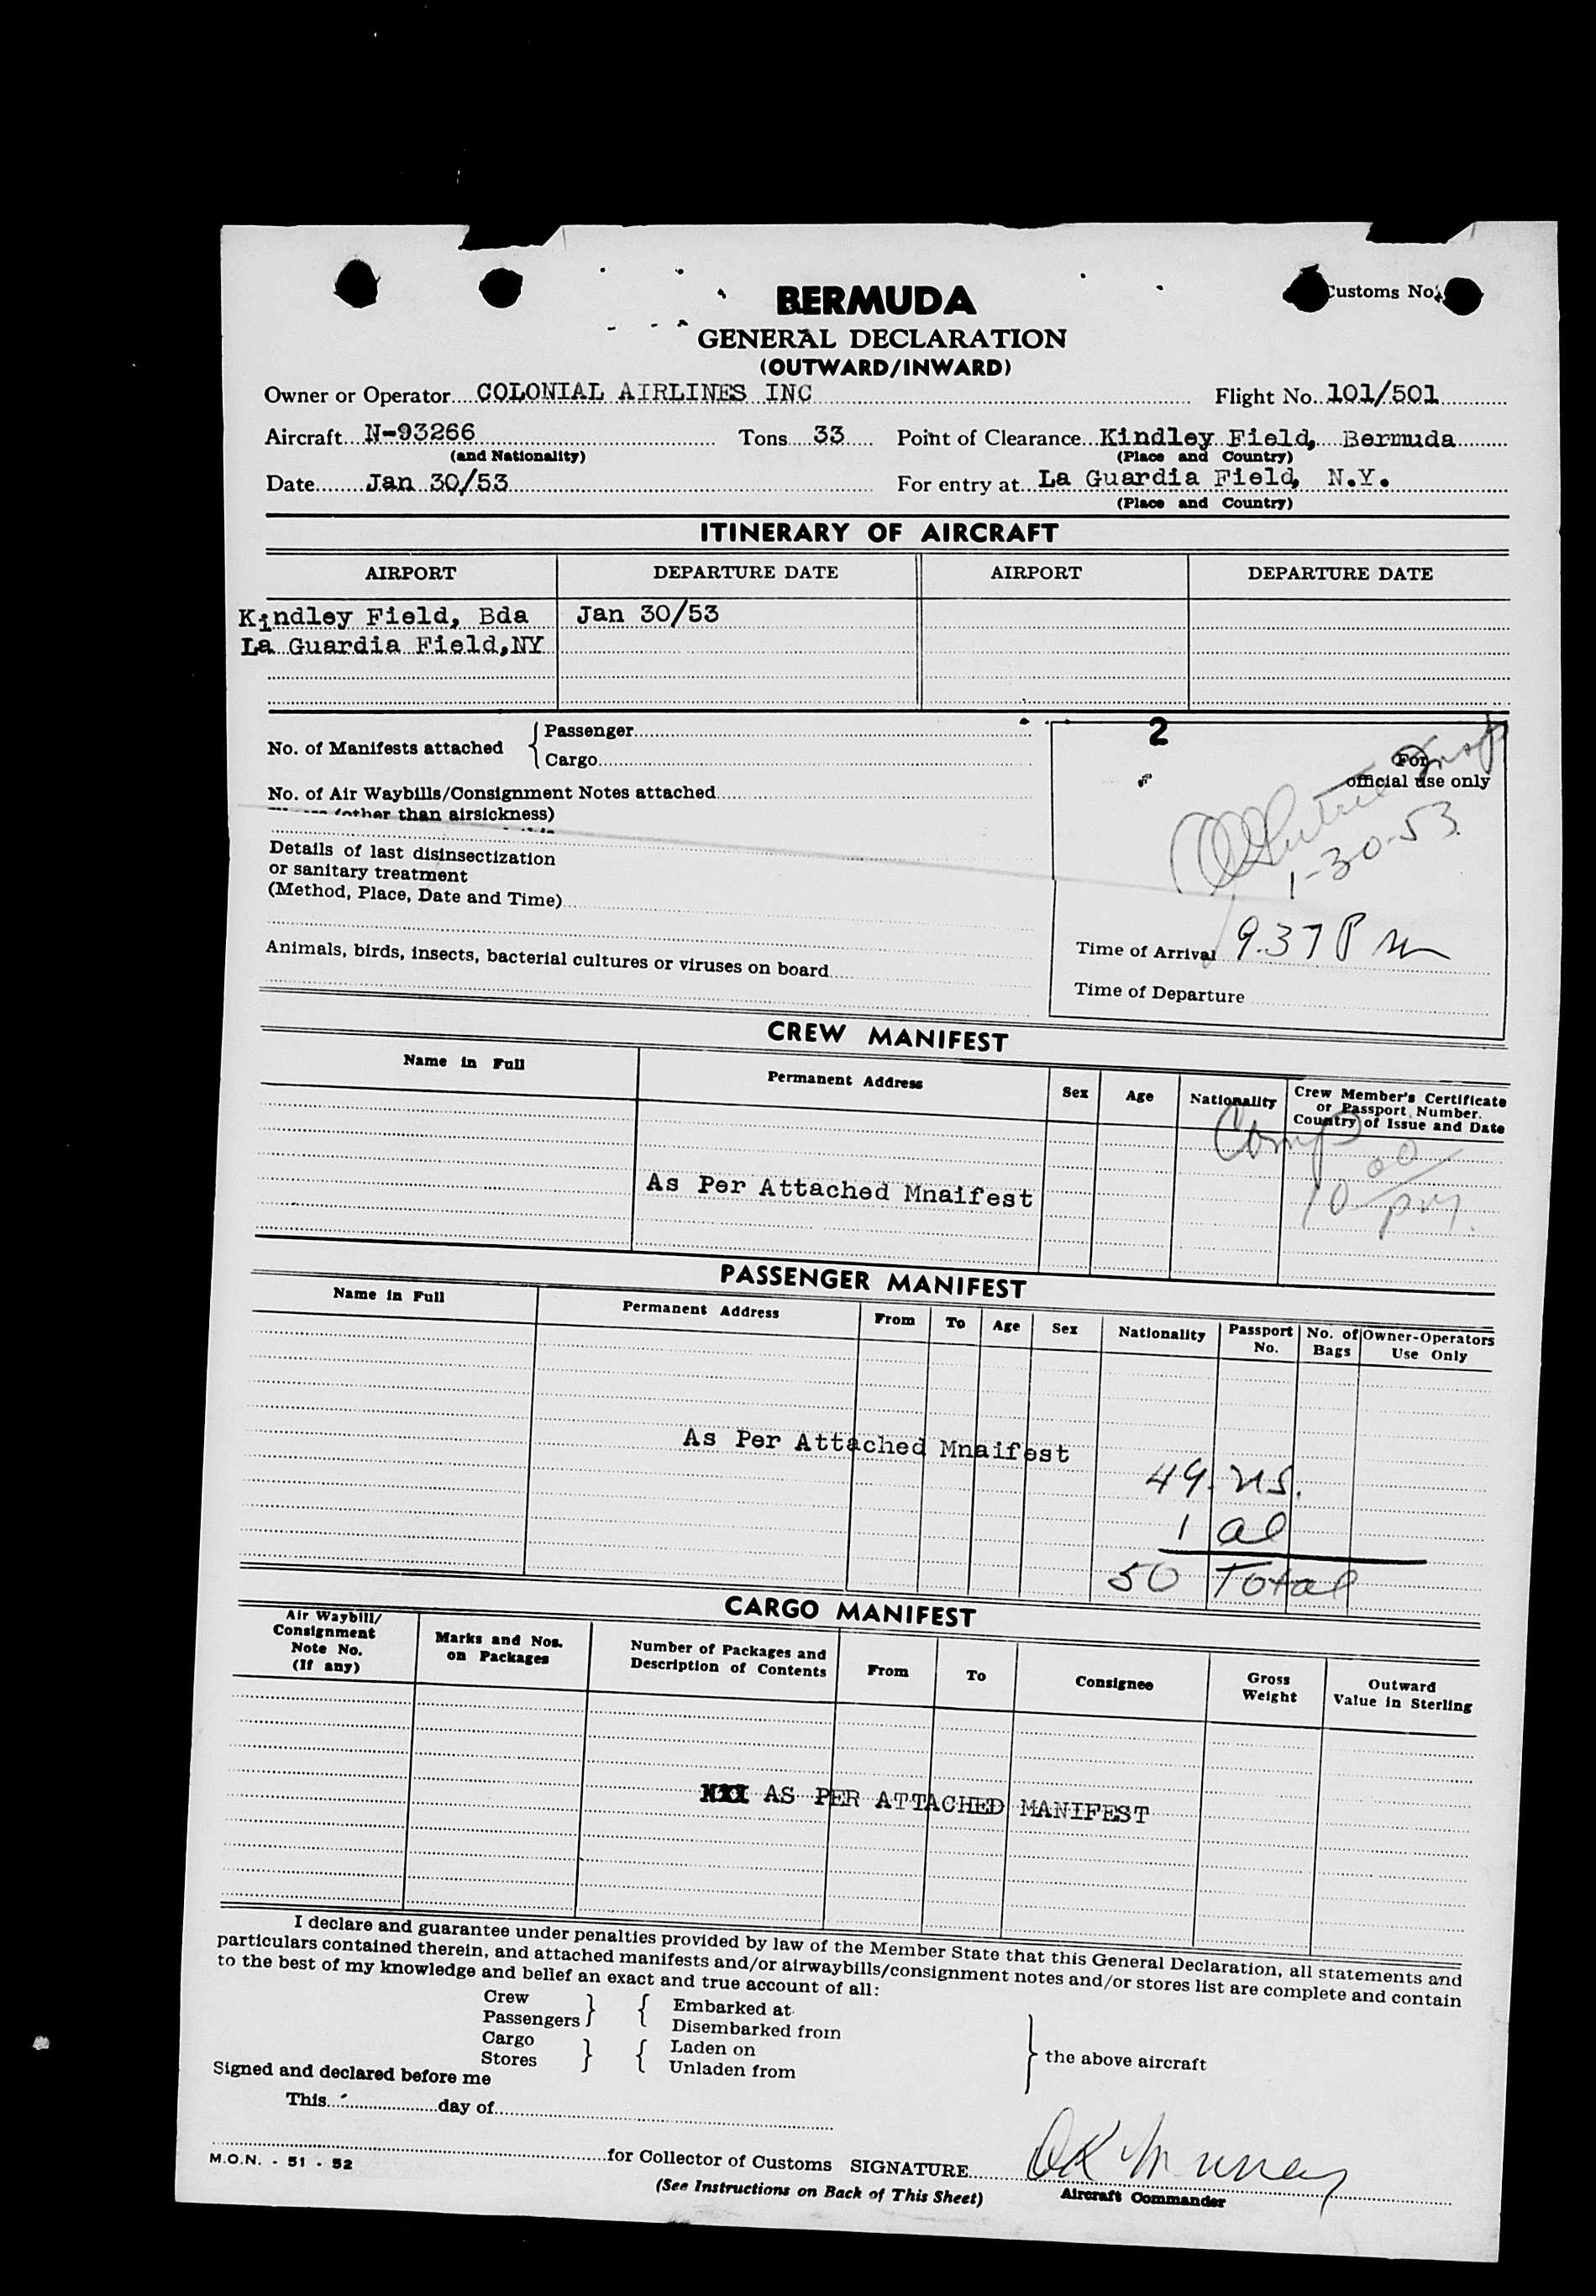 Customs No.
BERMUDA
GENERAL DECLARATION
(OUTWARD/INWARD)
Owner or Operator COLONIAL AIRLINES INC Flight No. 101/501
Aircraft N-93266 Tons 33 Point of Clearance Kindley Field, Bermuda
(and Nationality) (Place and Country)
Date Jan 30/53 For entry at La Guardia Field, N.Y.
(Place and Country)
ITINERARY OF AIRCRAFT
AIRPORT DEPARTURE DATE AIRPORT DEPARTURE DATE
Kindley Field, Bda Jan 30/53
La Guardia Field,NY
2
No. of Manifests attached { Passenger
Cargo
For
official use only
No. of Air Waybills/Consignment Notes attached
(other than airsickness)
1-30-53
Details of last disinsectization
or sanitary treatment
(Method, Place, Date and Time)
Animals, birds, insects, bacterial cultures or viruses on board
Time of Arrival 9.37 P m
Time of Departure
CREW MANIFEST
Name in Full Permanent Address Sex Age Nationality Crew Member's Certificate
or Passport Number.
Country of Issue and Date
Comp
10 00/pm.
As Per Attached Mnaifest
PASSENGER MANIFEST
Name in Full Permanent Address From To Age Sex Nationality Passport No. No. of Bags Owner-Operators Use Only
As Per Attached Mnaifest
49. us.
1 al
50 Total
CARGO MANIFEST
Air Waybill/ Consignment Note No. (If any) Marks and Nos. on Packages Number of Packages and Description of Contents From To Consignee Gross Weight Outward Value in Sterling
AS PER ATTACHED MANIFEST
I declare and guarantee under penalties provided by law of the Member State that this General Declaration, all statements and
particulars contained therein, and attached manifests and/or airwaybills/consignment notes and/or stores list are complete and contain
to the best of my knowledge and belief an exact and true account of all:
Crew } { Embarked at
Passengers Disembarked from
Cargo } { Laden on
Stores Unladen from
} the above aircraft
Signed and declared before me
This day of
for Collector of Customs SIGNATURE OK Murray
M.O.N. - 51 - 52
(See Instructions on Back of This Sheet) Aircraft Commander